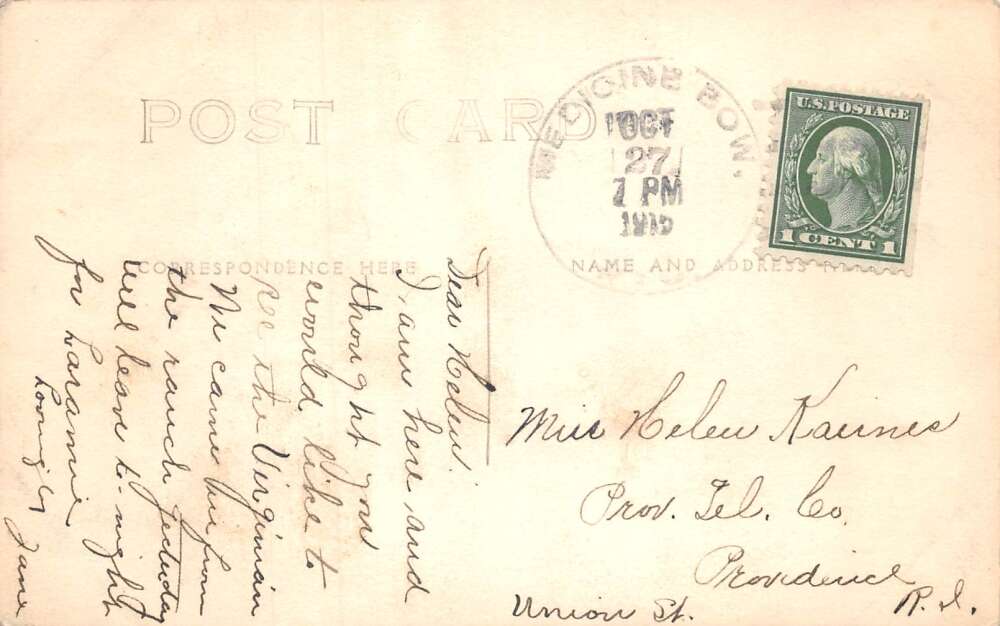 POST CARD
MEDICINE BOW.
OCT
27
7 PM
U.S. POSTAGE
1 CENT 1
CORRESPONDENCE HERE
NAME AND ADDRESS
Dear Helen:
I am here and
thought you
would like to
see the Virginian
We came in from
the ranch yesterday
will leave to-night
for Laramie
Lovingly
Jane
Miss Helen
Prov. Tel. Co.
Providence
Union St. R.I.